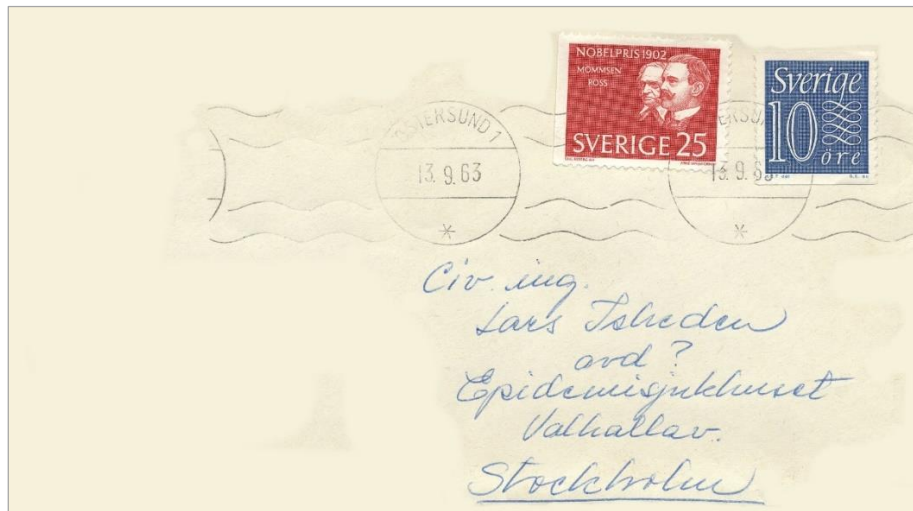 NOBELPRIS 1902
MOMMSEN
ROSS
SVERIGE 25
Sverige
10 öre
ÖSTERSUND 1
13.9.63
13.9.63
Civ. ing.
Lars
avd ?
Epidemisjukhuset
Valhallav.
Stockholm